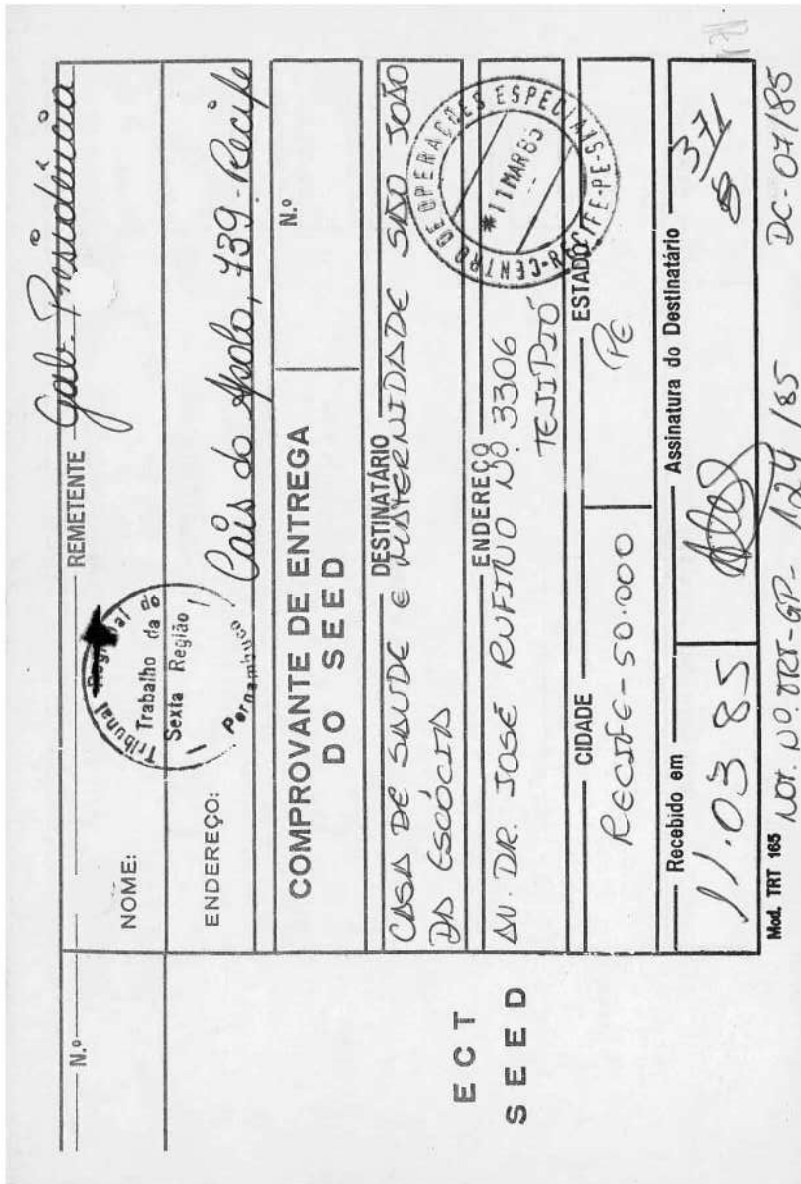 N.º
REMETENTE
Gab. Presidência
NOME:
Tribunal Regional do
Trabalho da
Sexta Região
Pernambuco
ENDEREÇO:
Cais do Apolo, 739 - Recife
ECT
SEED
COMPROVANTE DE ENTREGA
DO SEED
N.º
DESTINATÁRIO
CASA DE SAUDE E MATERNIDADE SÃO JOÃO
DA ESCÓCIA
ENDEREÇO
AV. DR. JOSÉ RUFINO Nº 3306
TEJIPIÓ
CENTRO DE OPERAÇÕES ESPECIAIS
*11 MAR 85
C-RECIFE-PE-S
CIDADE
RECIFE - 50.000
ESTADO
PE
Recebido em
11.03 85
Assinatura do Destinatário
371
Mod. TRT 165
NOT. Nº. TRT-GP- 124/85
DC-07/85